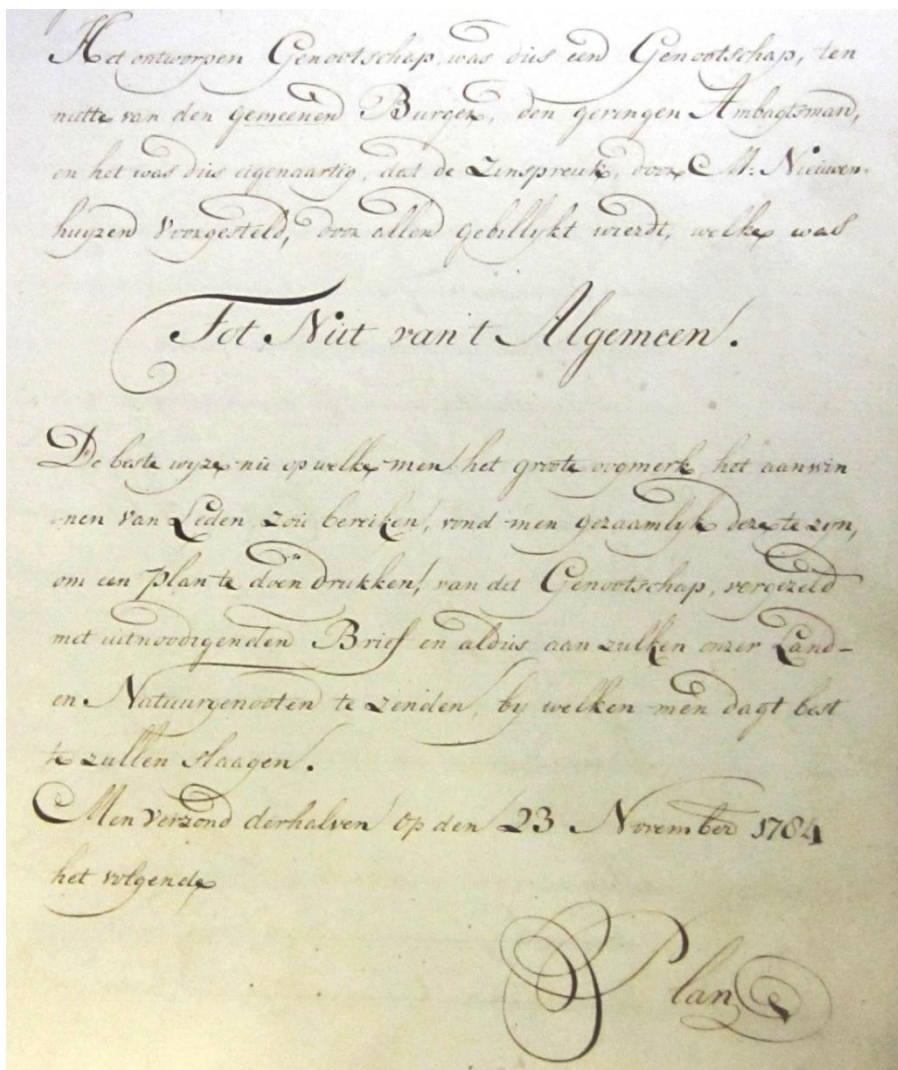 Het ontworpen Genootschap, was dus een Genootschap, ten
nutte van den gemeenen Burger, den geringen Ambagtsman,
en het was dus eigenaartig, dat de Zinspreuk, door M: Nieuwen-
huyzen voorgesteld, door allen gebillykt wierdt, welke was
Tot Nut van't Algemeen.
De beste wyze nu op welke men het groote oogmerk, het aanwin
-nen van Leden, zou bereiken, vond men gezaamlyk deze te zyn,
om een plan te doen drukken, van dit Genootschap, vergezeld
met uitnoodigenden Brief en aldus aan zulken onzer Land-
en Natuurgenooten te zenden, by welken men dagt best
te zullen slaagen.
Men verzond derhalven op den 23 November 1784
het volgende
Plan